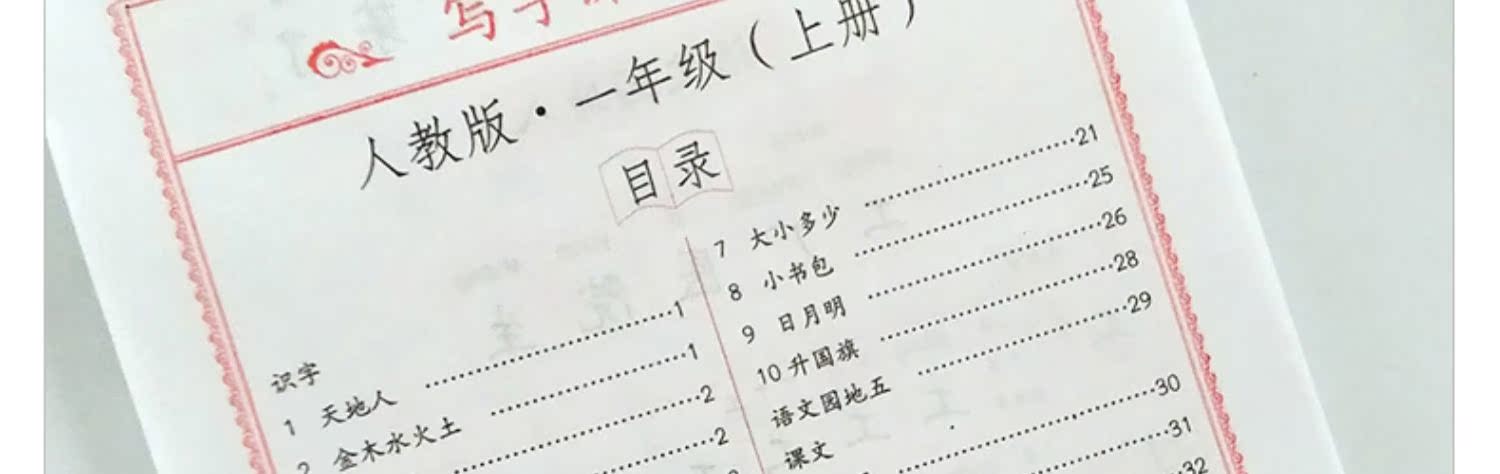 写字
人教版·一年级（上册）
目录
识字
1 天地人 ……1
2 金木水火土 ……1
……2
……2
7 大小多少 ……21
8 小书包 ……25
9 日月明 ……26
10 升国旗 ……28
语文园地五 ……29
课文
……30
……31
32